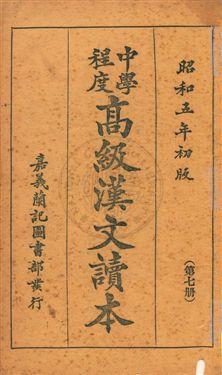 昭和五年初版
（第七册）
中學程度
高級漢文讀本
嘉義蘭記圖書部發行